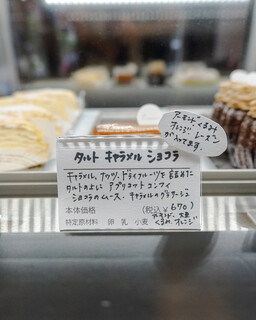 アーモンド くるみ
オレンジ レーズン
が入ってます。
タルト キャラメル ショコラ
キャラメル、ナッツ、ドライフルーツを詰めた
タルトの上に アプリコットコンフィ
ショコラのムース、キャラメルのグラサージュ
本体価格 (税込¥670)
アーモンド、大豆
特定原材料 卵 乳 小麦 くるみ、オレンジ